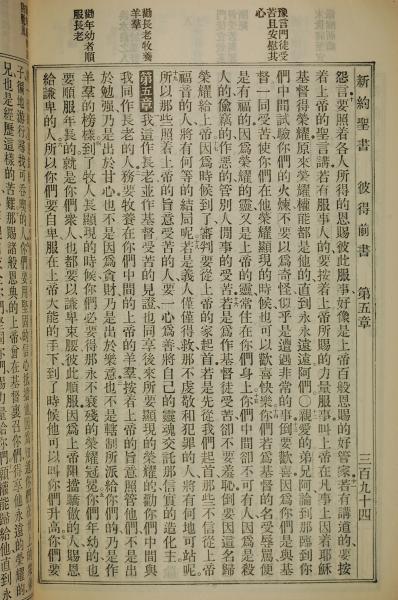 新約聖書　彼得前書　第五章　三百九十四
豫言門徒受
苦且安慰其
心
怨言要照着各人所得的恩賜彼此服事好像是上帝百般恩賜的好管家若有講道的要按
着上帝的聖言講若有服事人的要按着上帝所賜的力量服事叫上帝在凡事上因着耶穌
基督得榮耀原來榮耀權能都是他的直到永永遠遠阿們〇親愛的弟兄阿論到那臨到你
們中間試驗你們的火煉不要以爲奇怪似乎是遭遇非常的事倒要歡喜因爲你們是與基
督一同受苦使你們在他榮耀顯現的時候也可以歡喜快樂你們若爲基督的名受辱罵便
是有福的因爲榮耀的靈又是上帝的靈常住在你們身上你們中間卻不可有人因爲是殺
人的偷竊的作惡的管別人閒事的受苦若是爲作基督徒受苦卻不要羞恥倒要因這名歸
榮耀給上帝因爲時候到了審判要從上帝的家起首若是先從我們起首那些不信從上帝
福音的人將有何等的結局呢若是義人僅僅得救那不虔敬和犯罪的人將有何地可站呢
所以那些照着上帝的旨意受苦的人要一心爲善將自己的靈魂交託那信實的造化主
勸長老牧養
羊羣
第五章 我這作長老並作基督受苦的見證也同享後來所要顯現的榮耀的勸你們中間與
我同作長老的人務要牧養在你們中間的上帝的羊羣按着上帝的旨意照管他們不是出
於勉強乃是出於甘心也不是因爲貪財乃是出於樂意也不是轄制所派給你們的乃是作
羊羣的榜樣到了牧人長顯現的時候你們必要得那永不衰殘的榮耀冠冕你們年幼的也
勸年幼者順
服長老
要順服年長的就是你們衆人也都要以謙卑束腰彼此順服因爲上帝阻擋驕傲的人賜恩
給謙卑的人所以你們要自卑服在上帝大能的手下到了時候他可以叫你們升高你們要
兄也是經歷這樣的苦難那賜諸般恩典的上帝曾在基督裏召你們得享他永遠的榮耀